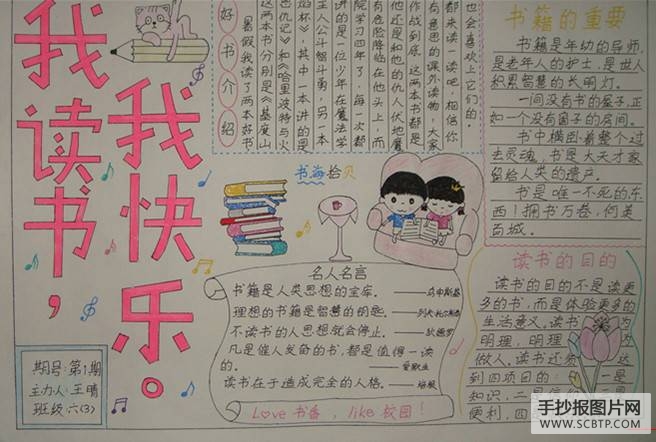 我读书，
我快乐。
期号：第1期
主力人：王晴
班级：六(3)
好书介绍
暑假我读了两本好书
这两本书分别是《基度山
恩仇记》和《哈里波特与火
焰杯》，其中一本讲的是
主人公斗智斗勇，另一本
讲的是一位少年在魔法学
院学习四年了，每一次都
有危险降临在他头上，而
他还是和他的仇人伏地魔
作战到底。这两本书都是
有意思的课外读物，大家
都来读一读吧，相信你
也会喜欢上它们的。
书海拾贝
名人名言
书籍是人类思想的宝库。——乌申斯基
理想的书籍是智慧的钥匙。——列夫托尔斯泰
不读书的人思想就会停止。——狄德罗
凡是催人发奋的书，都是值得一读
的。——爱默生
读书在于造成完全的人格。——培根
Love 书香，like 校园！
书籍的重要
书籍是年幼的导师，
是老年人的护士，是世人
积累智慧的长明灯。
一间没有书的屋子，正
如一个没有窗子的房间。
书中横卧着整个过
去灵魂，书是大天才家
留给人类的遗产。
书是唯一不死的东
西！拥书万卷，何美
百城。
读书的目的
读书的目的不是读更
多的书，而是体验更多的
生活意义。读书 为
明理，明理 为
做人。读书还须 达
到四项目的： 一是
知识，二是 三
便利，四
手抄报图片网
WWW.SCBTP.COM